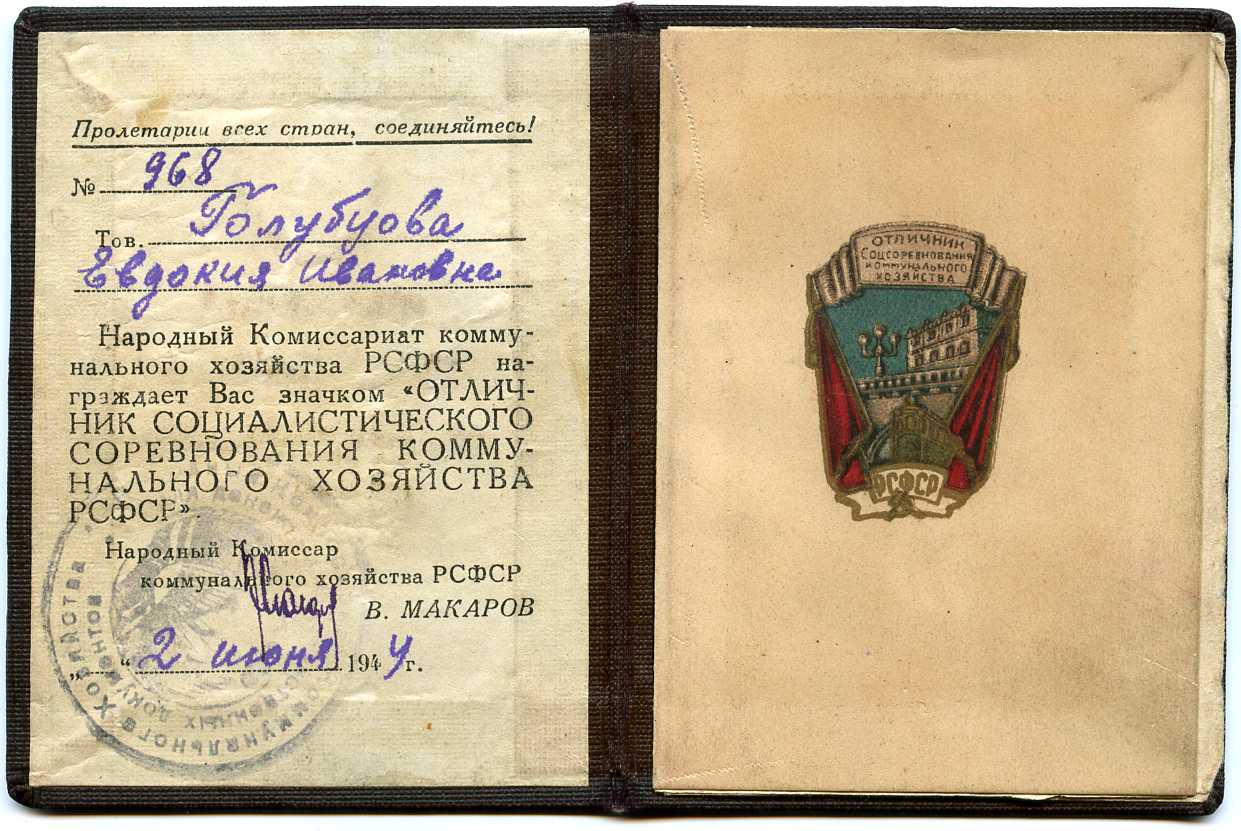 Пролетарии всех стран, соединяйтесь!
№ 968
Тов. Голубцова
Евдокия Ивановна
Народный Комиссариат комму-
нального хозяйства РСФСР на-
граждает Вас значком «ОТЛИЧ-
НИК СОЦИАЛИСТИЧЕСКОГО
СОРЕВНОВАНИЯ КОММУ-
НАЛЬНОГО ХОЗЯЙСТВА
РСФСР».
Народный Комиссар
коммунального хозяйства РСФСР
В. МАКАРОВ
„ “ 2 июня 1944 г.
Коммунального Хозяйства
документов
ОТЛИЧНИК
СОЦСОРЕВНОВАНИЯ
КОММУНАЛЬНОГО
ХОЗЯЙСТВА
РСФСР